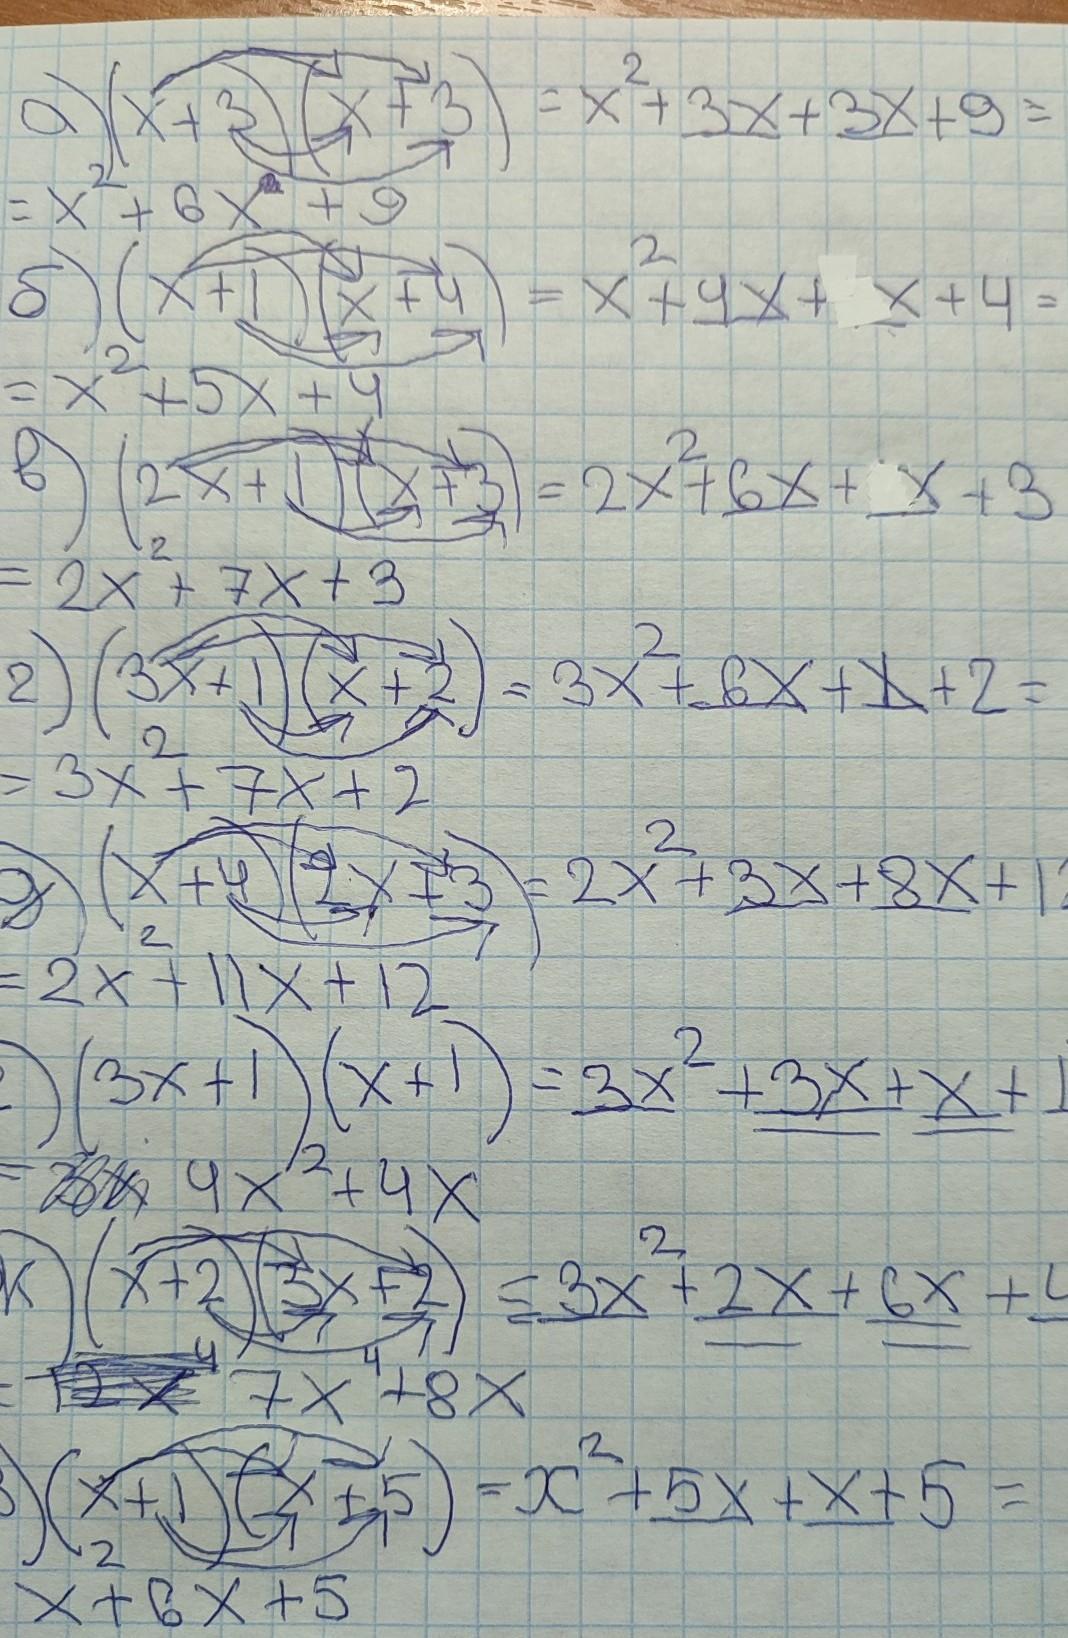 а) (x+3)(x+3) = x²+3x+3x+9=
= x²+6x+9
б) (x+1)(x+4) = x²+4x+x+4=
= x²+5x+4
в) (2x+1)(x+3) = 2x²+6x+x+3
= 2x²+7x+3
г) (3x+1)(x+2) = 3x²+6x+x+2=
= 3x²+7x+2
д) (x+4)(2x+3) = 2x²+3x+8x+12
= 2x²+11x+12
) (3x+1)(x+1) = 3x²+3x+x+1
= 4x²+4x
ж) (x+2)(3x+2) = 3x²+2x+6x+4
= 7x⁴+8x
з) (x+1)(x+5) = x²+5x+x+5=
x²+6x+5